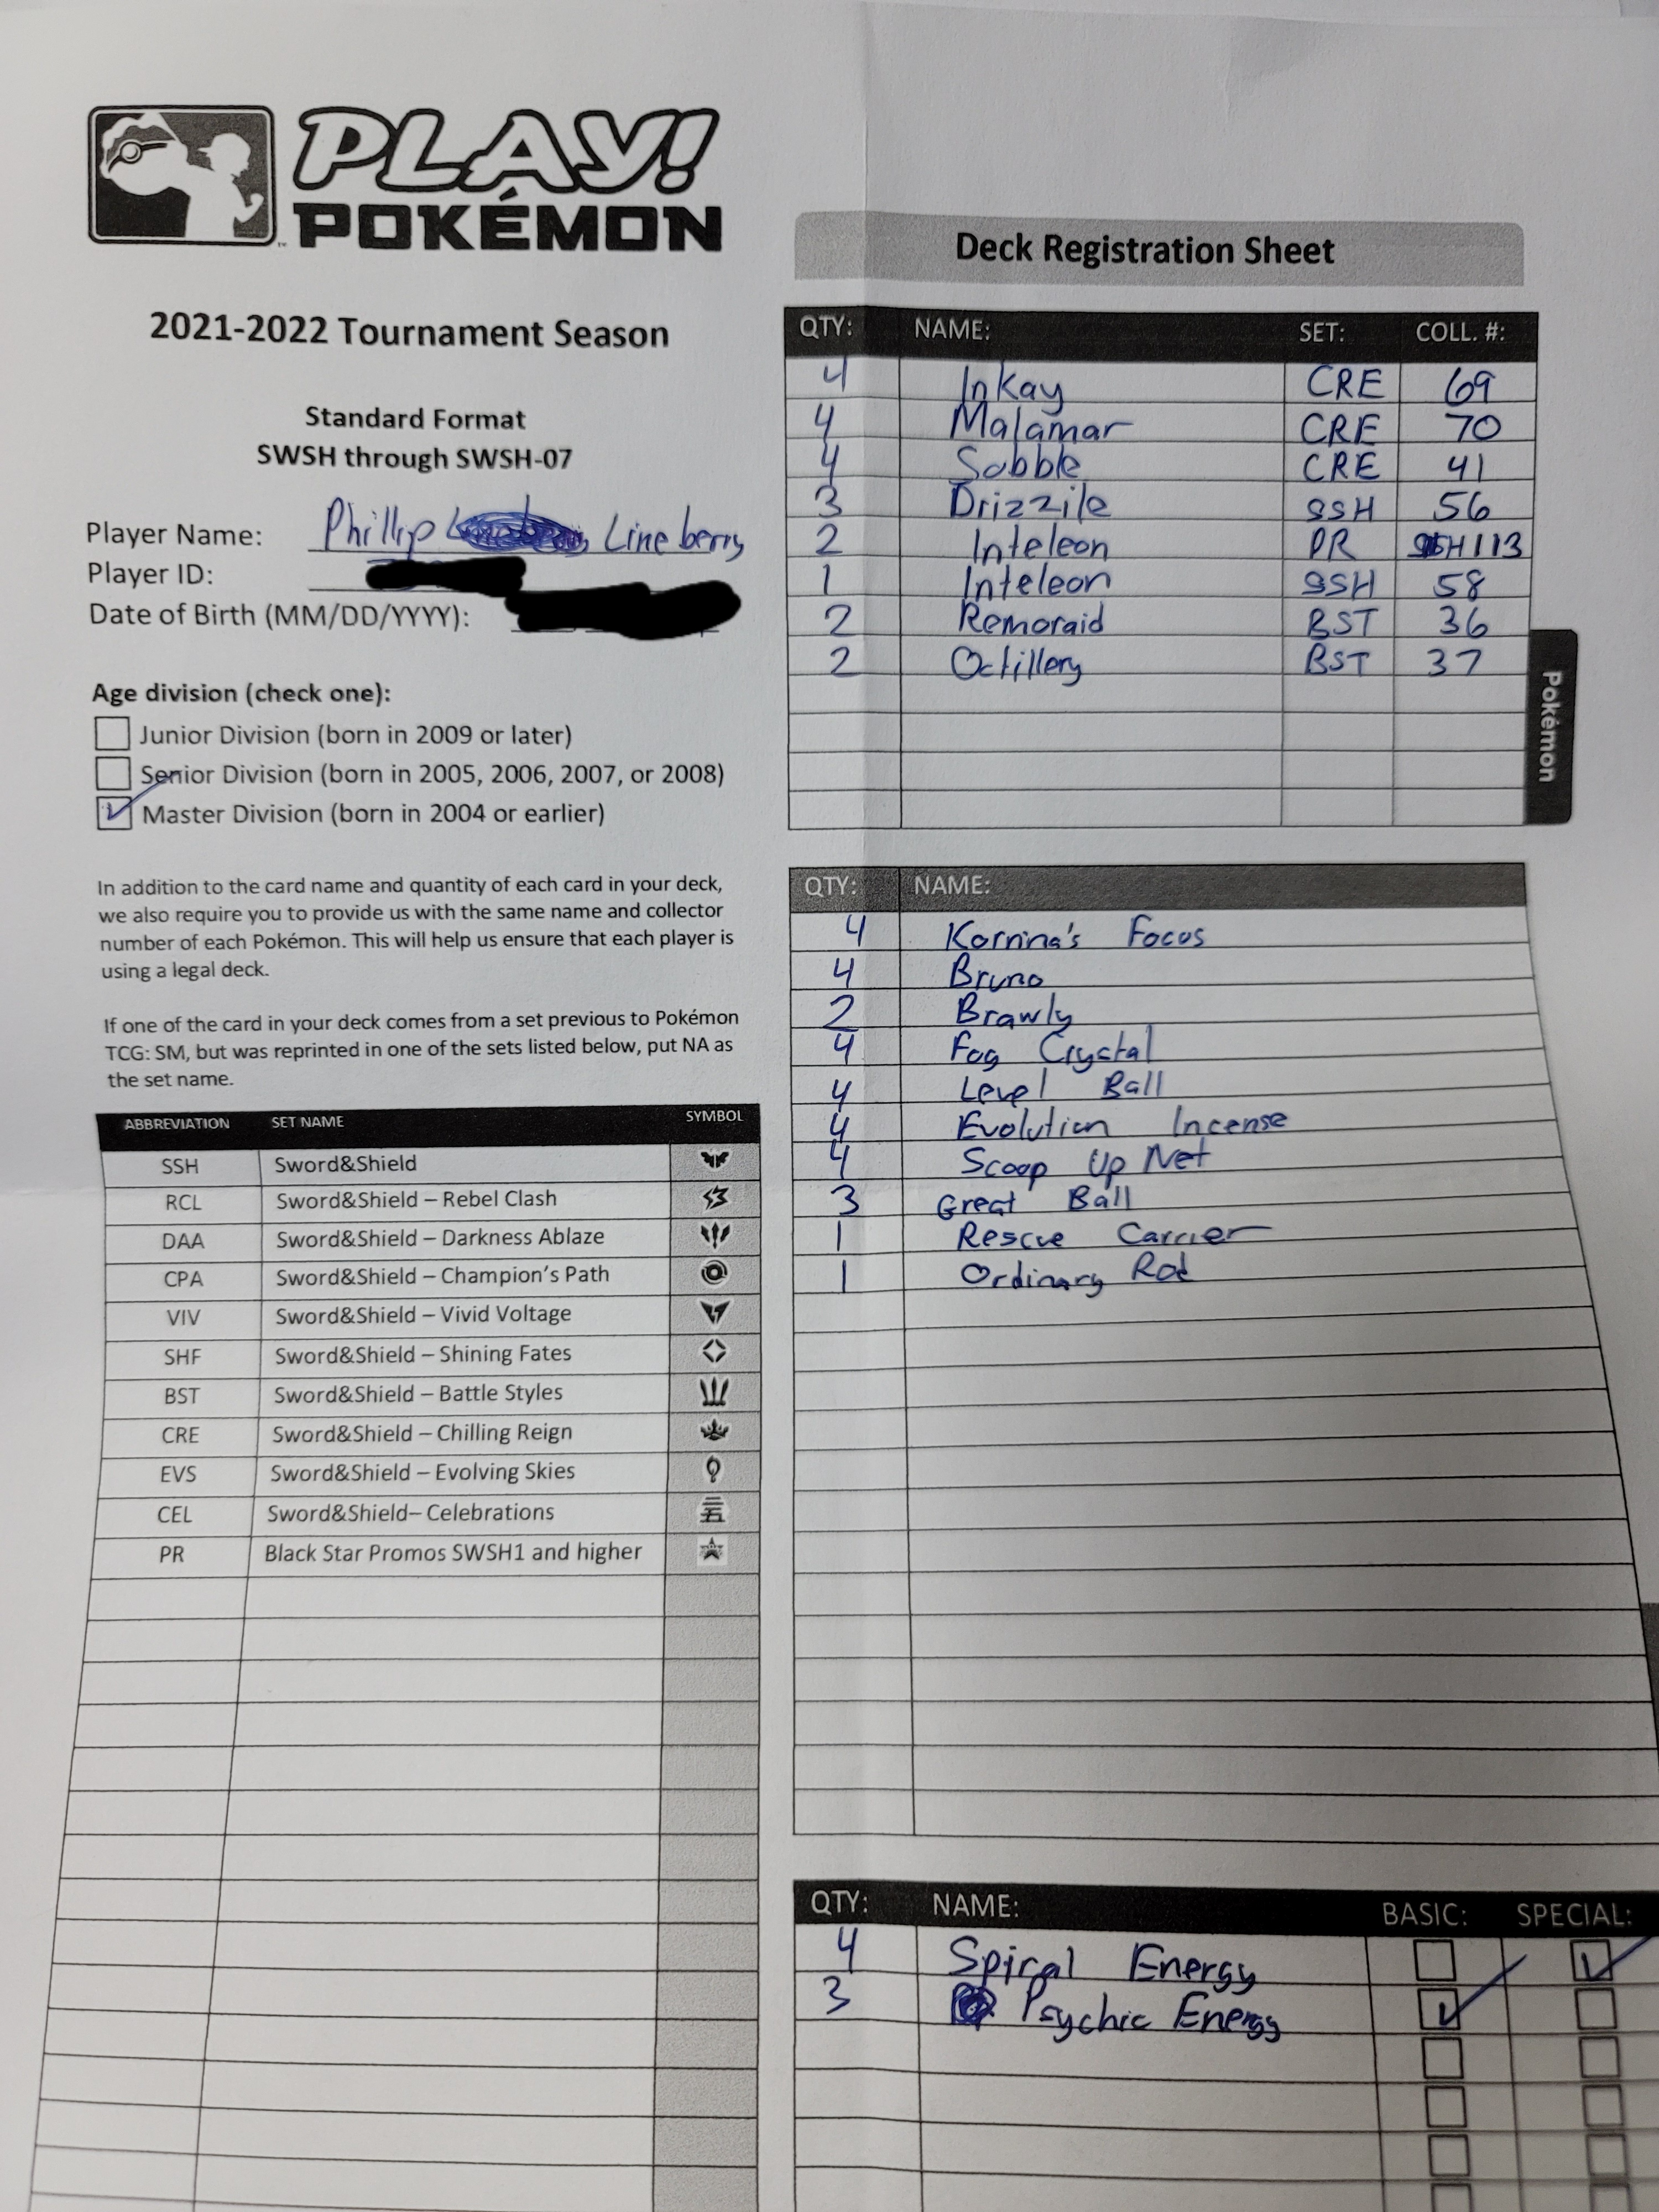 PLAY!
POKÉMON
2021-2022 Tournament Season
Standard Format
SWSH through SWSH-07
Player Name: Phillip Lineberry
Player ID:
Date of Birth (MM/DD/YYYY):
Age division (check one):
Junior Division (born in 2009 or later)
Senior Division (born in 2005, 2006, 2007, or 2008)
Master Division (born in 2004 or earlier)
In addition to the card name and quantity of each card in your deck,
we also require you to provide us with the same name and collector
number of each Pokémon. This will help us ensure that each player is
using a legal deck.
If one of the card in your deck comes from a set previous to Pokémon
TCG: SM, but was reprinted in one of the sets listed below, put NA as
the set name.
ABBREVIATION SET NAME SYMBOL
SSH Sword&Shield
RCL Sword&Shield – Rebel Clash
DAA Sword&Shield – Darkness Ablaze
CPA Sword&Shield – Champion's Path
VIV Sword&Shield – Vivid Voltage
SHF Sword&Shield – Shining Fates
BST Sword&Shield – Battle Styles
CRE Sword&Shield – Chilling Reign
EVS Sword&Shield – Evolving Skies
CEL Sword&Shield– Celebrations
PR Black Star Promos SWSH1 and higher
Deck Registration Sheet
QTY: NAME: SET: COLL. #:
4 Inkay CRE 69
4 Malamar CRE 70
4 Sobble CRE 41
3 Drizzile SSH 56
2 Inteleon PR SH113
1 Inteleon SSH 58
2 Remoraid BST 36
2 Octillery BST 37
Pokémon
QTY: NAME:
4 Korrina's Focus
4 Bruno
2 Brawly
4 Fog Crystal
4 Level Ball
4 Evolution Incense
4 Scoop Up Net
3 Great Ball
1 Rescue Carrier
1 Ordinary Rod
QTY: NAME: BASIC: SPECIAL:
4 Spiral Energy
3 Psychic Energy